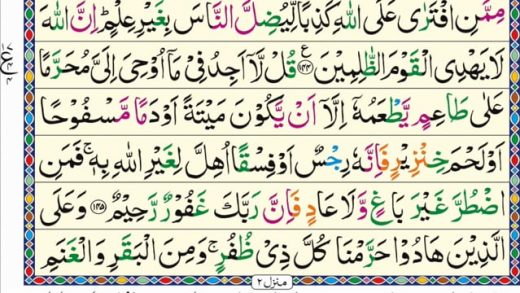 مِمَّنِ افْتَرٰی عَلَی اللّٰهِ كَذِبًا لِّیُضِلَّ النَّاسَ بِغَیْرِ عِلْمٍ ؕ اِنَّ اللّٰهَ
لَا یَهْدِی الْقَوْمَ الظّٰلِمِیْنَ ﴿۱۴۴﴾ ع قُلْ لَّاۤ اَجِدُ فِیْ مَاۤ اُوْحِیَ اِلَیَّ مُحَرَّمًا
عَلٰی طَاعِمٍ یَّطْعَمُهٗۤ اِلَّاۤ اَنْ یَّكُوْنَ مَیْتَةً اَوْ دَمًا مَّسْفُوْحًا
اَوْ لَحْمَ خِنْزِیْرٍ فَاِنَّهٗ رِجْسٌ اَوْ فِسْقًا اُهِلَّ لِغَیْرِ اللّٰهِ بِهٖ ۚ فَمَنِ
اضْطُرَّ غَیْرَ بَاغٍ وَّلَا عَادٍ فَاِنَّ رَبَّكَ غَفُوْرٌ رَّحِیْمٌ ﴿۱۴۵﴾ وَعَلَی
الَّذِیْنَ هَادُوْا حَرَّمْنَا كُلَّ ذِیْ ظُفُرٍ ۚ وَمِنَ الْبَقَرِ وَالْغَنَمِ
منزل ۲